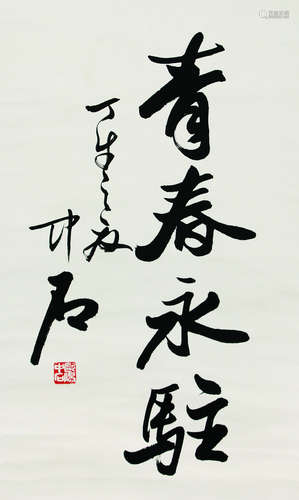 青春永駐
丁丑之
中石